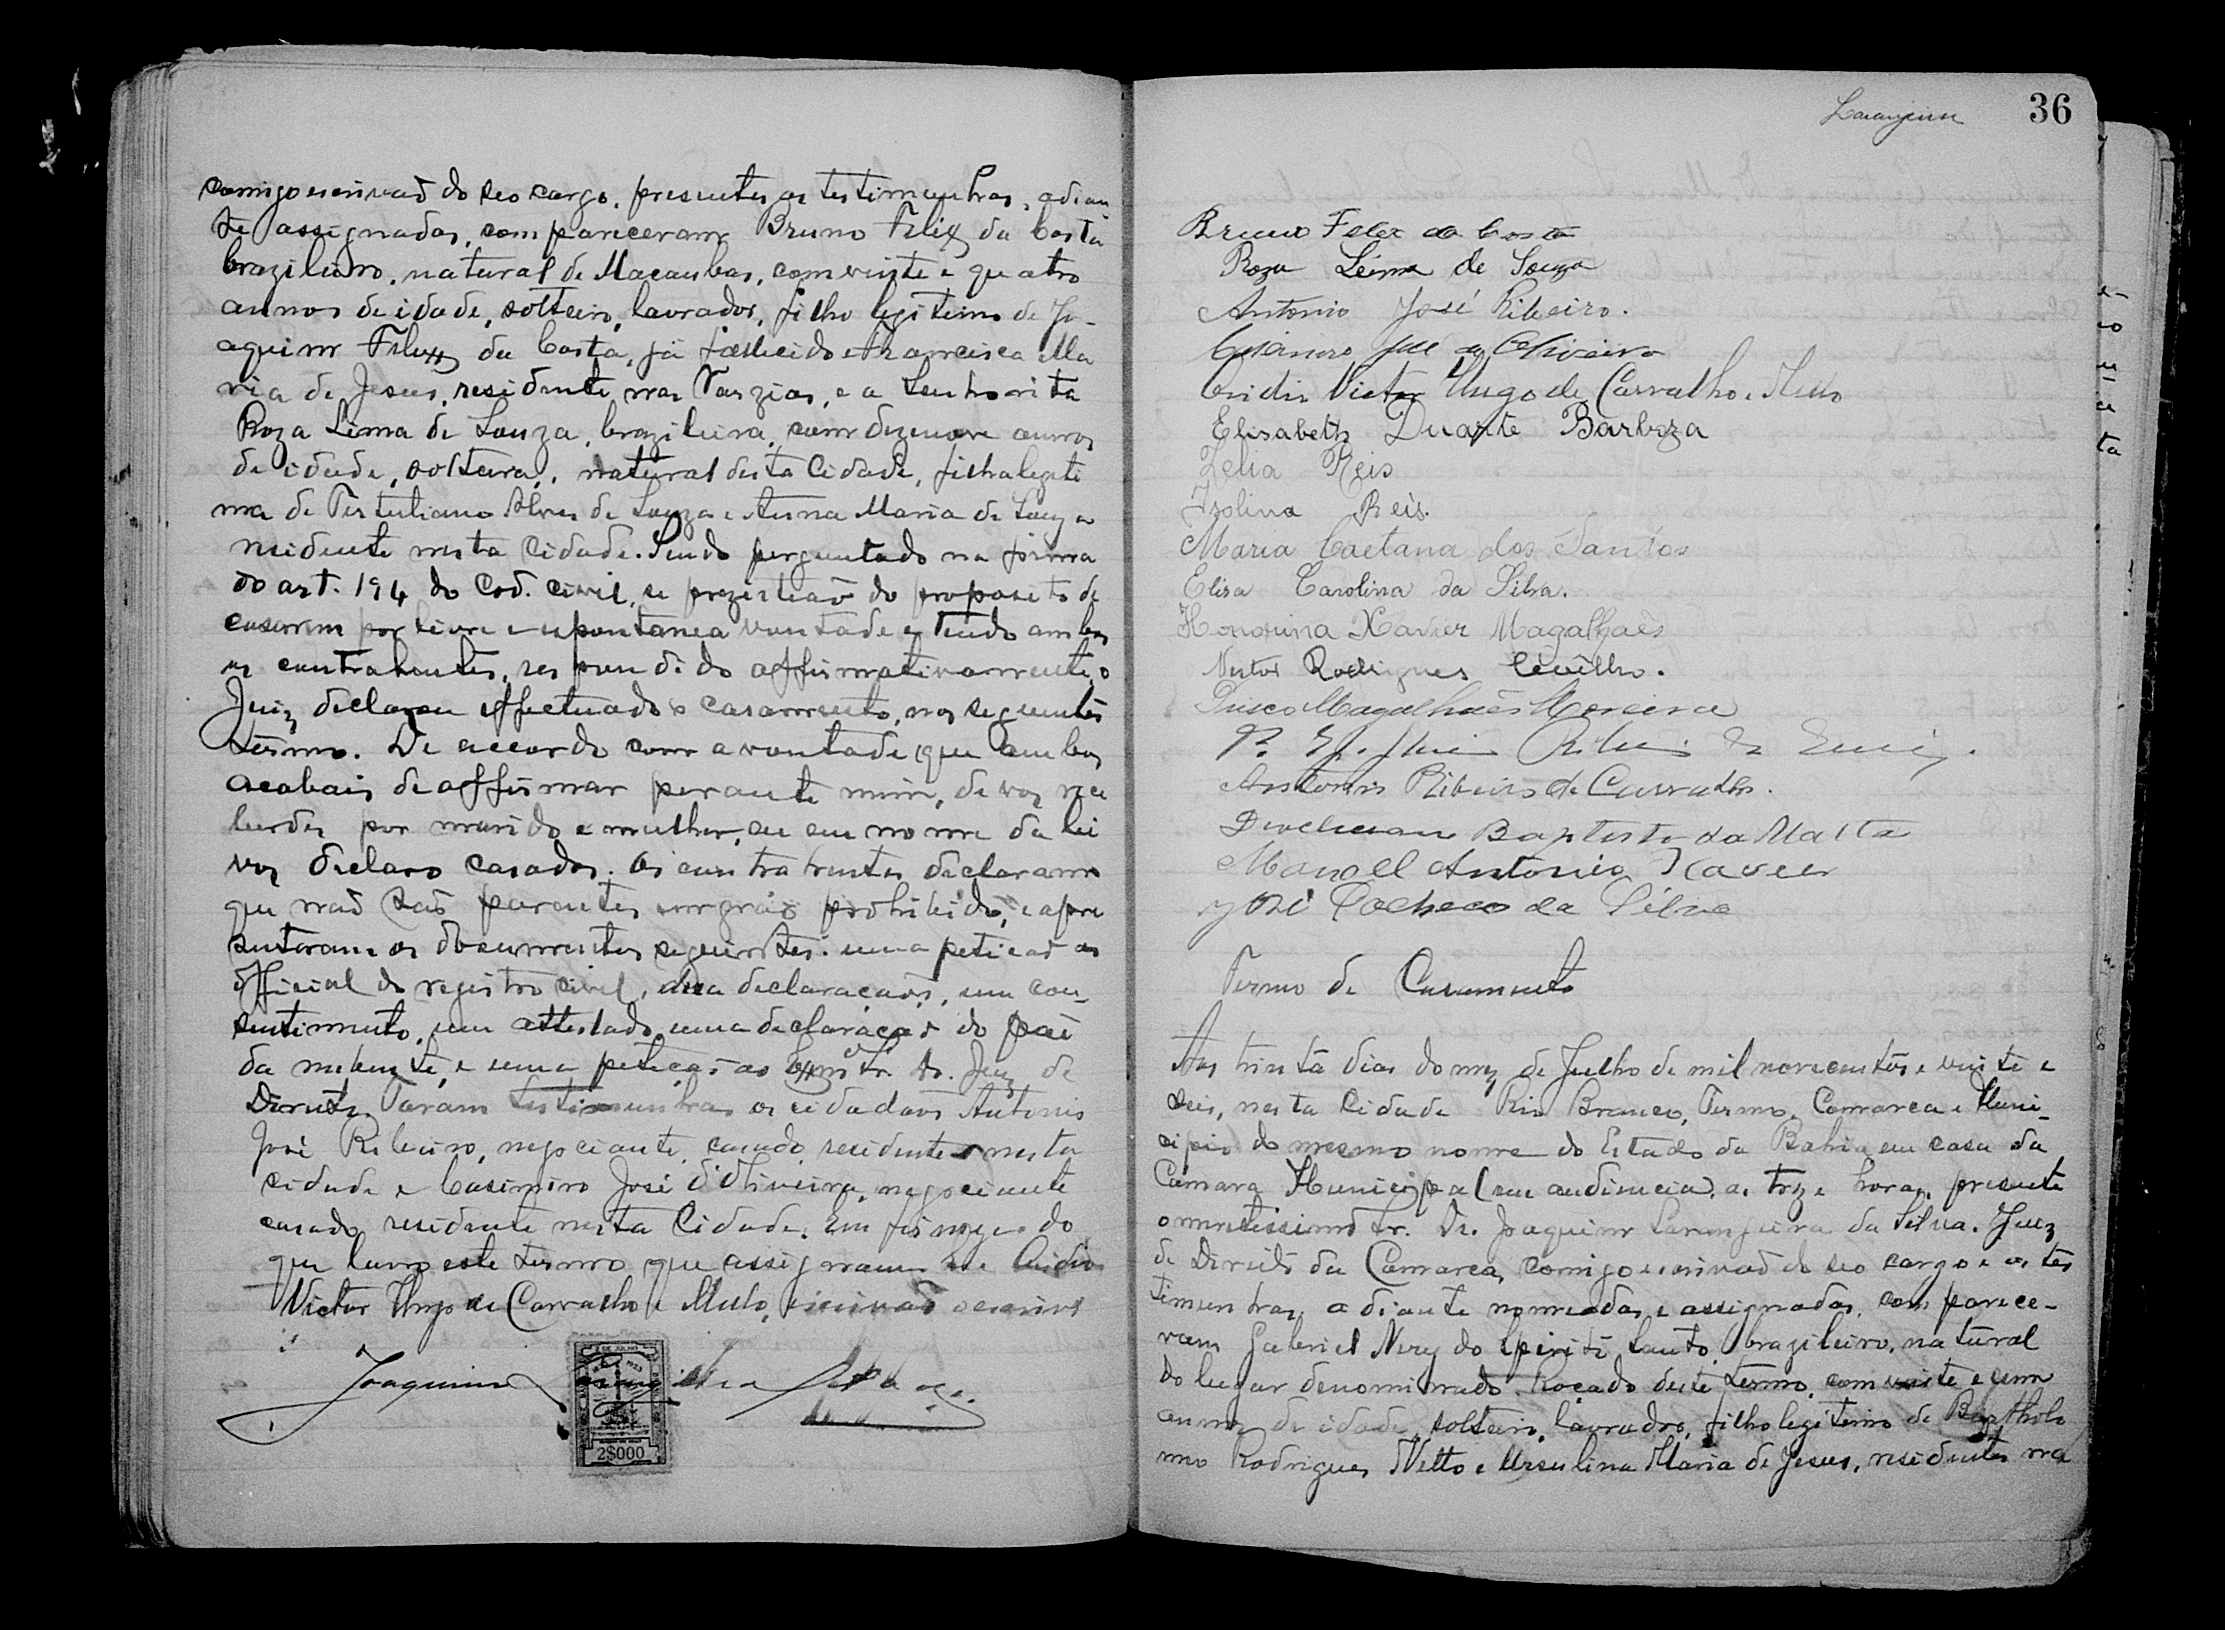 comigo escrivaõ do seo cargo, presentes as testimunhas, adian-
te assignadas, compareceram Bruno Felix da Costa
brazileiro, natural de Macaubas, com vinte e quatro
annos de idade, solteiro, lavrador, filho legitimo de Jo-
aquim Felix da Costa, já fallecido e Francisca Ma
ria de Jesus, residente nas Varzias, e a Senhorita
Roza Lima de Souza, brazileira, com dezenove annos
de idade, solteira, natural desta Cidade, filha legiti
ma de Tertuliano Alves de Souza e Anna Maria de Souza
residente nesta Cidade. Sendo perguntado na forma
do art. 194 do Cod. Civil, se prezisteaõ do proposito de
casarem por livre e espontanea vontade e tendo ambos
os contrahentes, respondido affirmativamente, o
Juiz declarou effectuado o casamento, nos seguintes
termo. De accordo com a vontade que ambos
acabais de affirmar perante mim, de vos rece
berdes por marido e mulher, eu em nome da lei
vos declaro casados. Os contrahentes declararam
que naõ saõ parentes em gráo prohibido, e apre
sentaram os documentos seguintes: uma peticaõ ao
official do registro civil, uma declaracaõ, um con-
sentimento, um attestado, uma declaracaõ do pai
da nubente, e uma peticaõ ao Exmo Sr. Dr. Juiz de
Direito. Foram testimunhas os cidadaõs Antonio
José Ribeiro, negociante, casado, residente nesta
cidade e Casimiro José d'Oliveira, negociante
casado, residente nesta Cidade. Em firmeza do
que lavro este termo que assignam. Eu
Victor Hugo de Carvalho e Mello, escrivaõ o escrivi
Joaquim
2$000
Laranjeira
36
Bruno Felix da Costa
Roza Leima de Souza
Antonio José Ribeiro.
Casimiro José de Oliveira
Victor Hugo de Carvalho e Mello
Elisabeth Duarte Barboza
Zelia Reis
Izolina Reis.
Maria Caetana dos Santos
Elisa Carolina da Silva.
Honorina Xavier Magalhaẽs
Nestor Rodrigues
Magalhaẽs Moreira
Antonio Ribeiro de Carvalho.
Baptista da Matta
Manoell Antonio Xavier
José Pacheco da Silva
Termo de Casamento
Aos trinta dias do mez de Julho de mil novecentos e vinte e
seis, nesta Cidade Rio Branco, Termo, Comarca e Muni-
cipio do mesmo nome do Estado da Bahia em casa da
Camara Municipal (em audiencia), as treze horas, presente
o meritissimo Sr. Dr. Joaquim Laranjeira da Silva, Juiz
de Direito da Comarca, comigo escrivaõ do seo cargo e as tes
timunhas, adiante nomeadas e assignadas, comparece-
ram Gabriel Nery do Spirito Santo, brazileiro, natural
do lugar denominado Roçado deste termo, com vinte e um
annos de idade, solteiro, lavrador, filho legitimo de Bartholo
meo Rodrigues Netto e Ursulina Maria de Jesus, residentes na